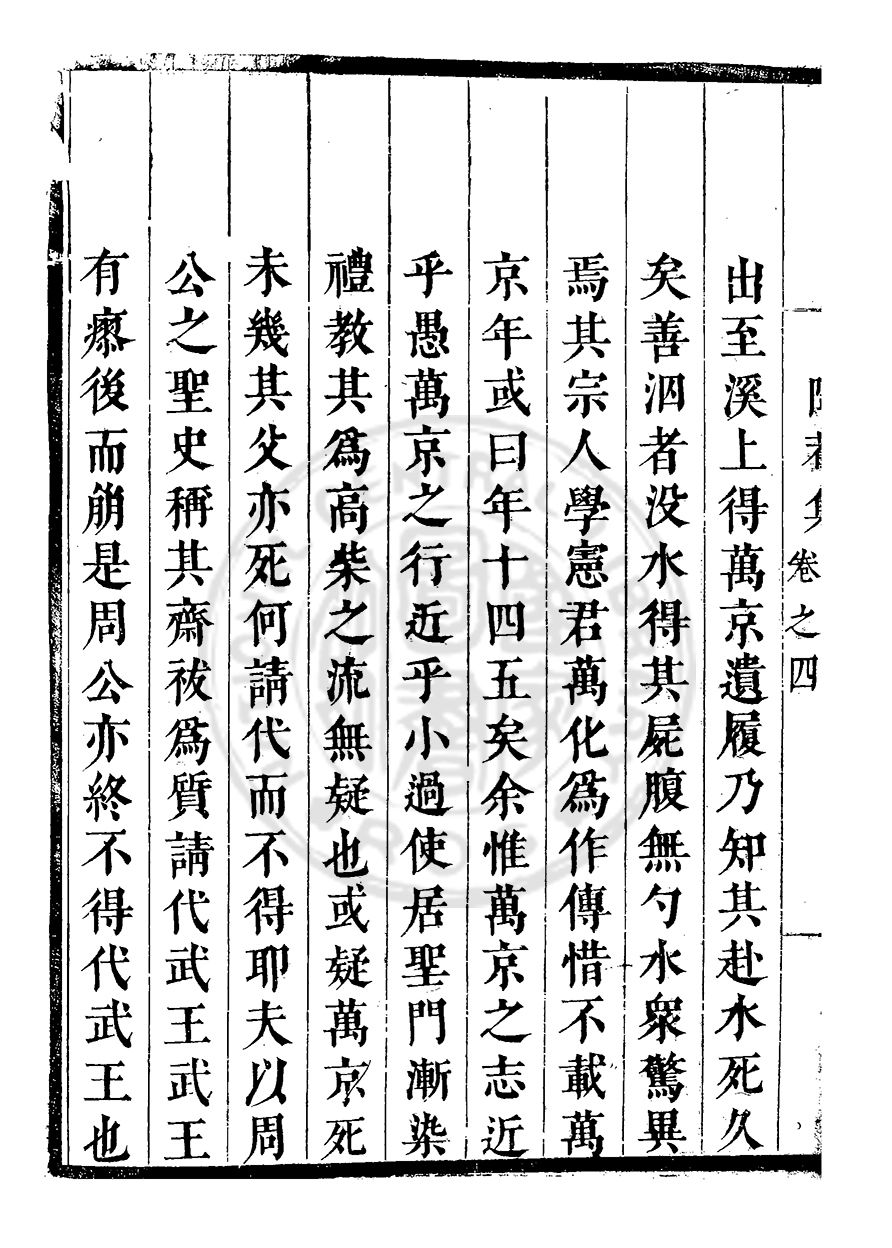 集卷之四
出至溪上得萬京遺履乃知其赴水死久
矣善泅者没水得其屍腹無勺水衆驚異
焉其宗人學憲君萬化爲作傳惜不載萬
京年或曰年十四五矣余惟萬京之志近
乎愚萬京之行近乎小過使居聖門漸染
禮教其爲高柴之流無疑也或疑萬京死
未幾其父亦死何請代而不得耶夫以周
公之聖史稱其齋祓爲質請代武王武王
有瘳後而崩是周公亦終不得代武王也